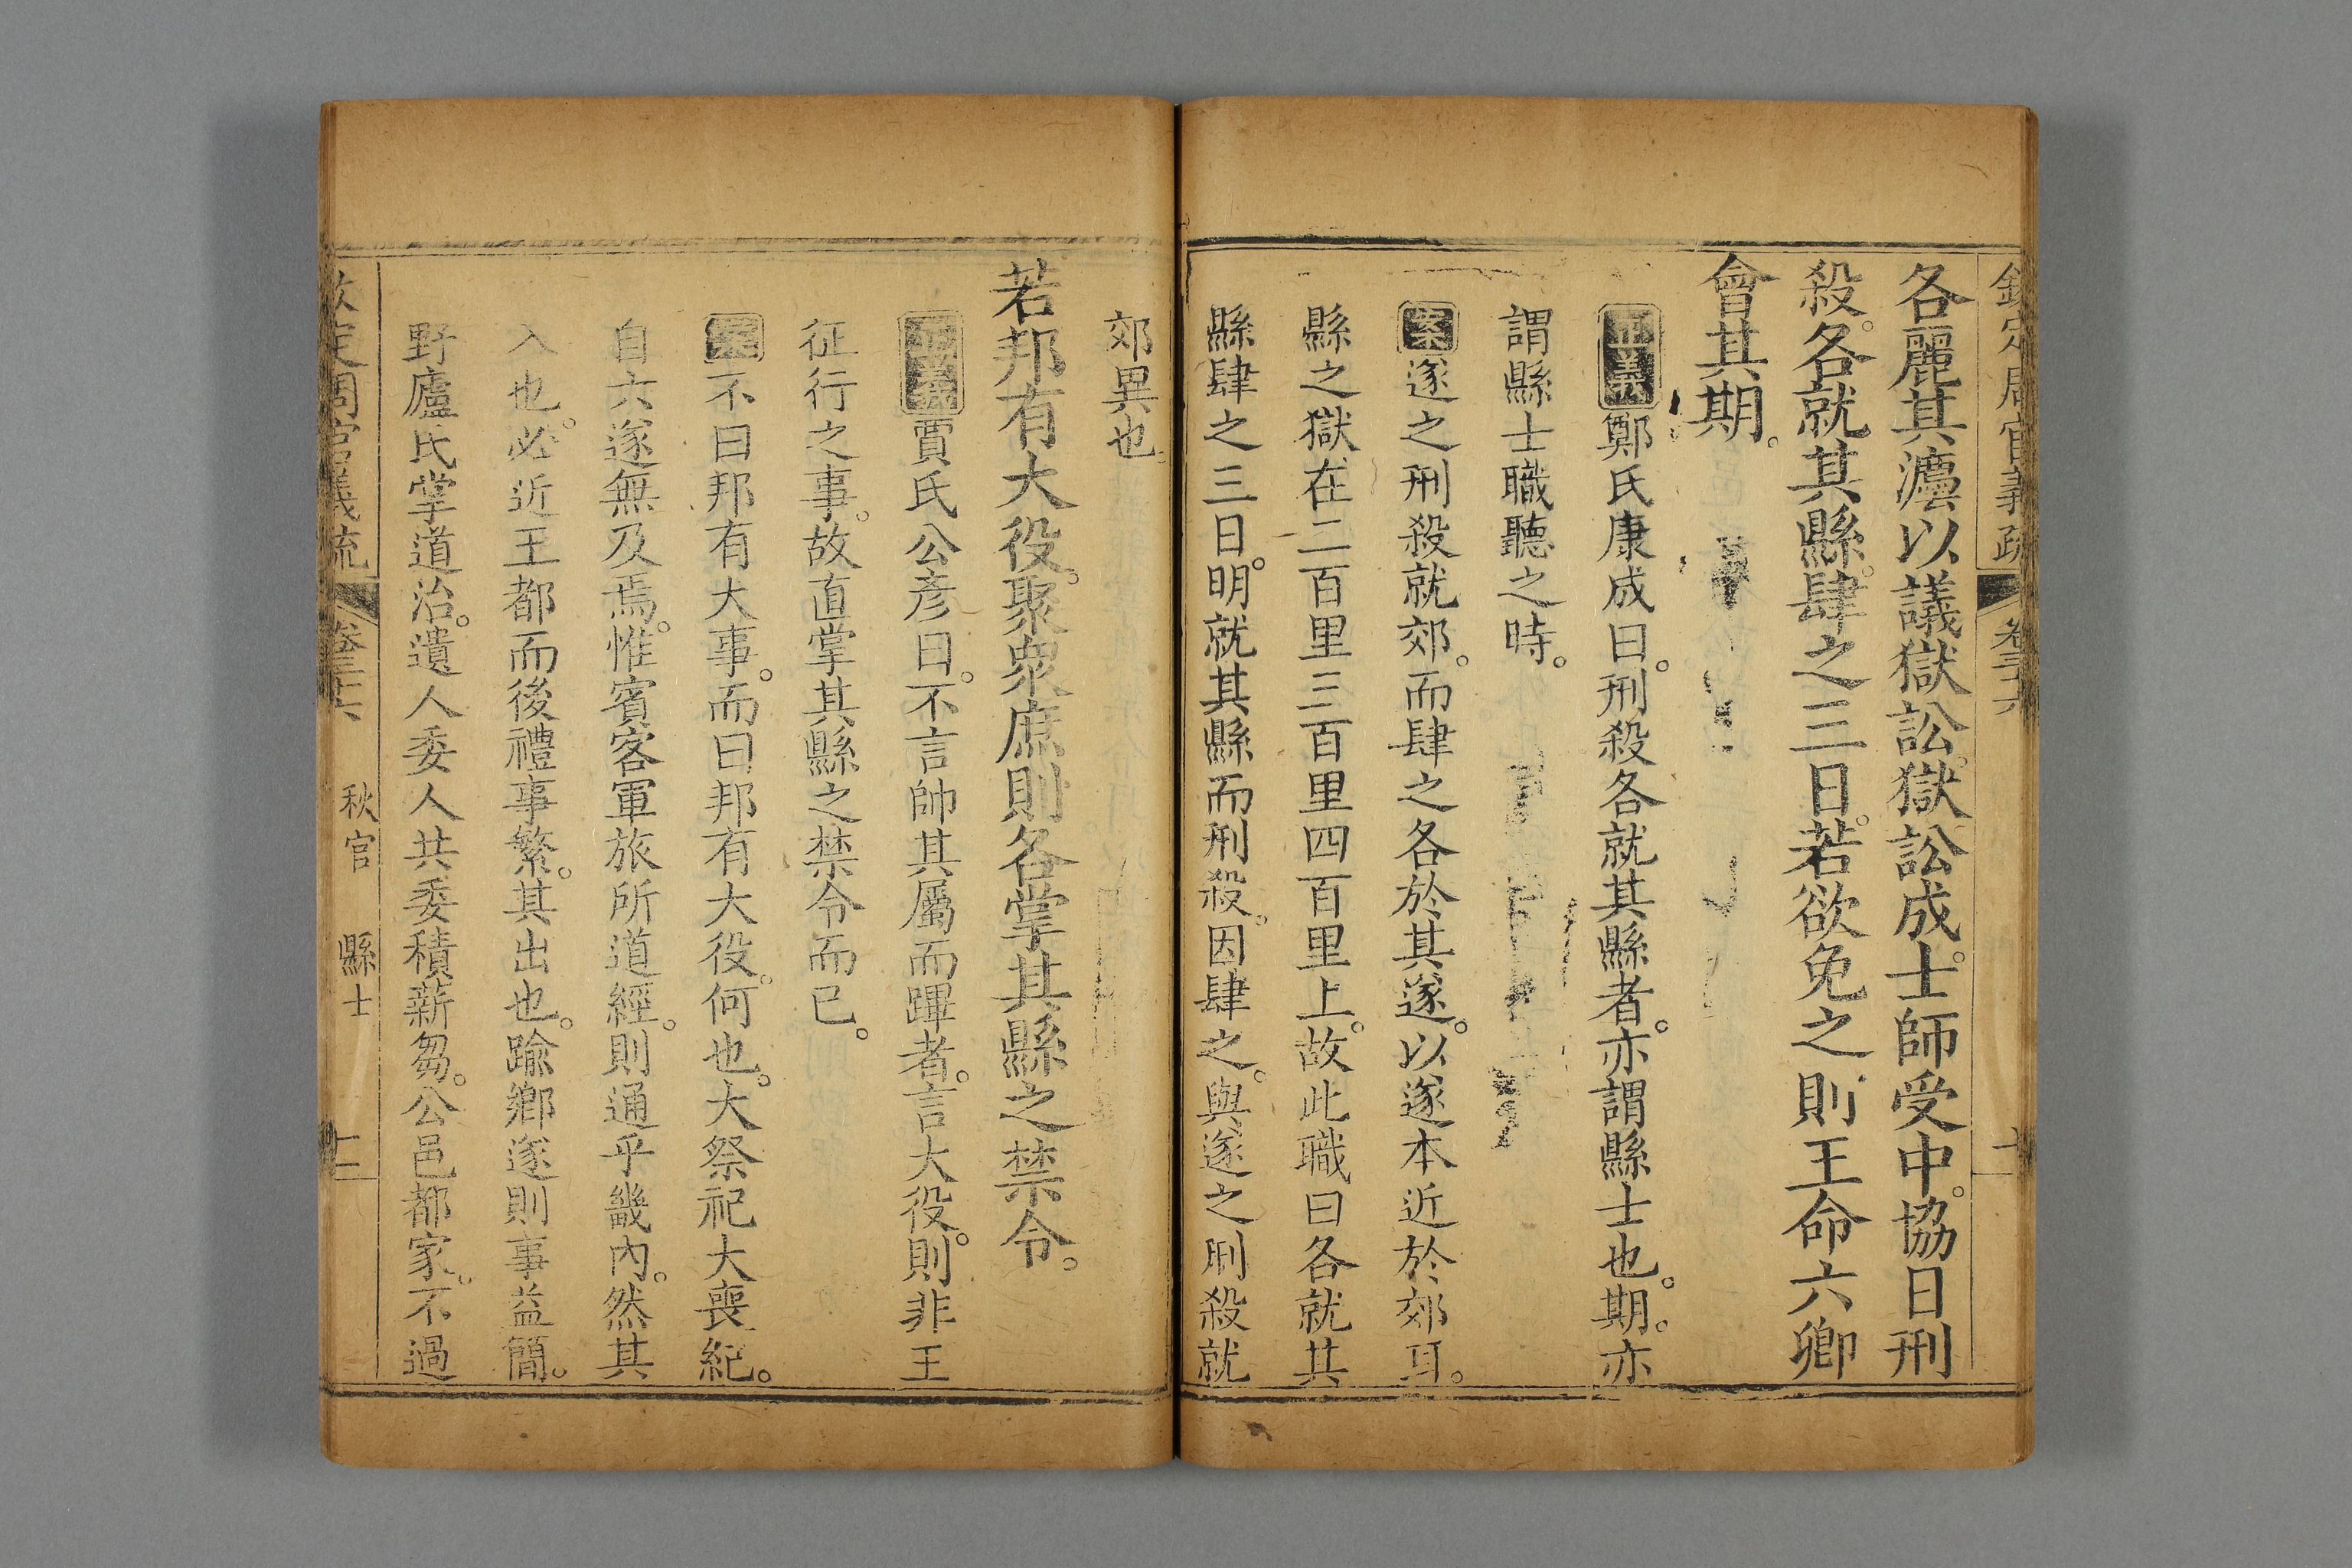 欽定周官義疏 卷三十六 十
各麗其灋以議獄訟。獄訟成。士師受中。協日刑
殺。各就其縣。肆之三日。若欲免之則王命六卿
會其期。
正義鄭氏康成曰。刑殺各就其縣者。亦謂縣士也。期。亦
謂縣士職聽之時。
案遂之刑殺就郊。而肆之各於其遂。以遂本近於郊耳。
縣之獄在二百里三百里四百里上。故此職曰各就其
縣肆之三日。明就其縣而刑殺。因肆之。與遂之刑殺就
郊異也。
若邦有大役。聚衆庶則各掌其縣之禁令。
正義賈氏公彥曰。不言帥其屬而蹕者。言大役。則非王
征行之事。故直掌其縣之禁令而已。
案不曰邦有大事。而曰邦有大役。何也。大祭祀大喪紀。
自六遂無及焉。惟賓客軍旅所道經。則通乎畿內。然其
入也。必近王都而後禮事繁。其出也。踰鄉遂則事益簡。
野廬氏掌道治。遺人委人共委積薪芻。公邑都家。不過
欽定周官義疏 卷三十六 秋官 縣士 十一